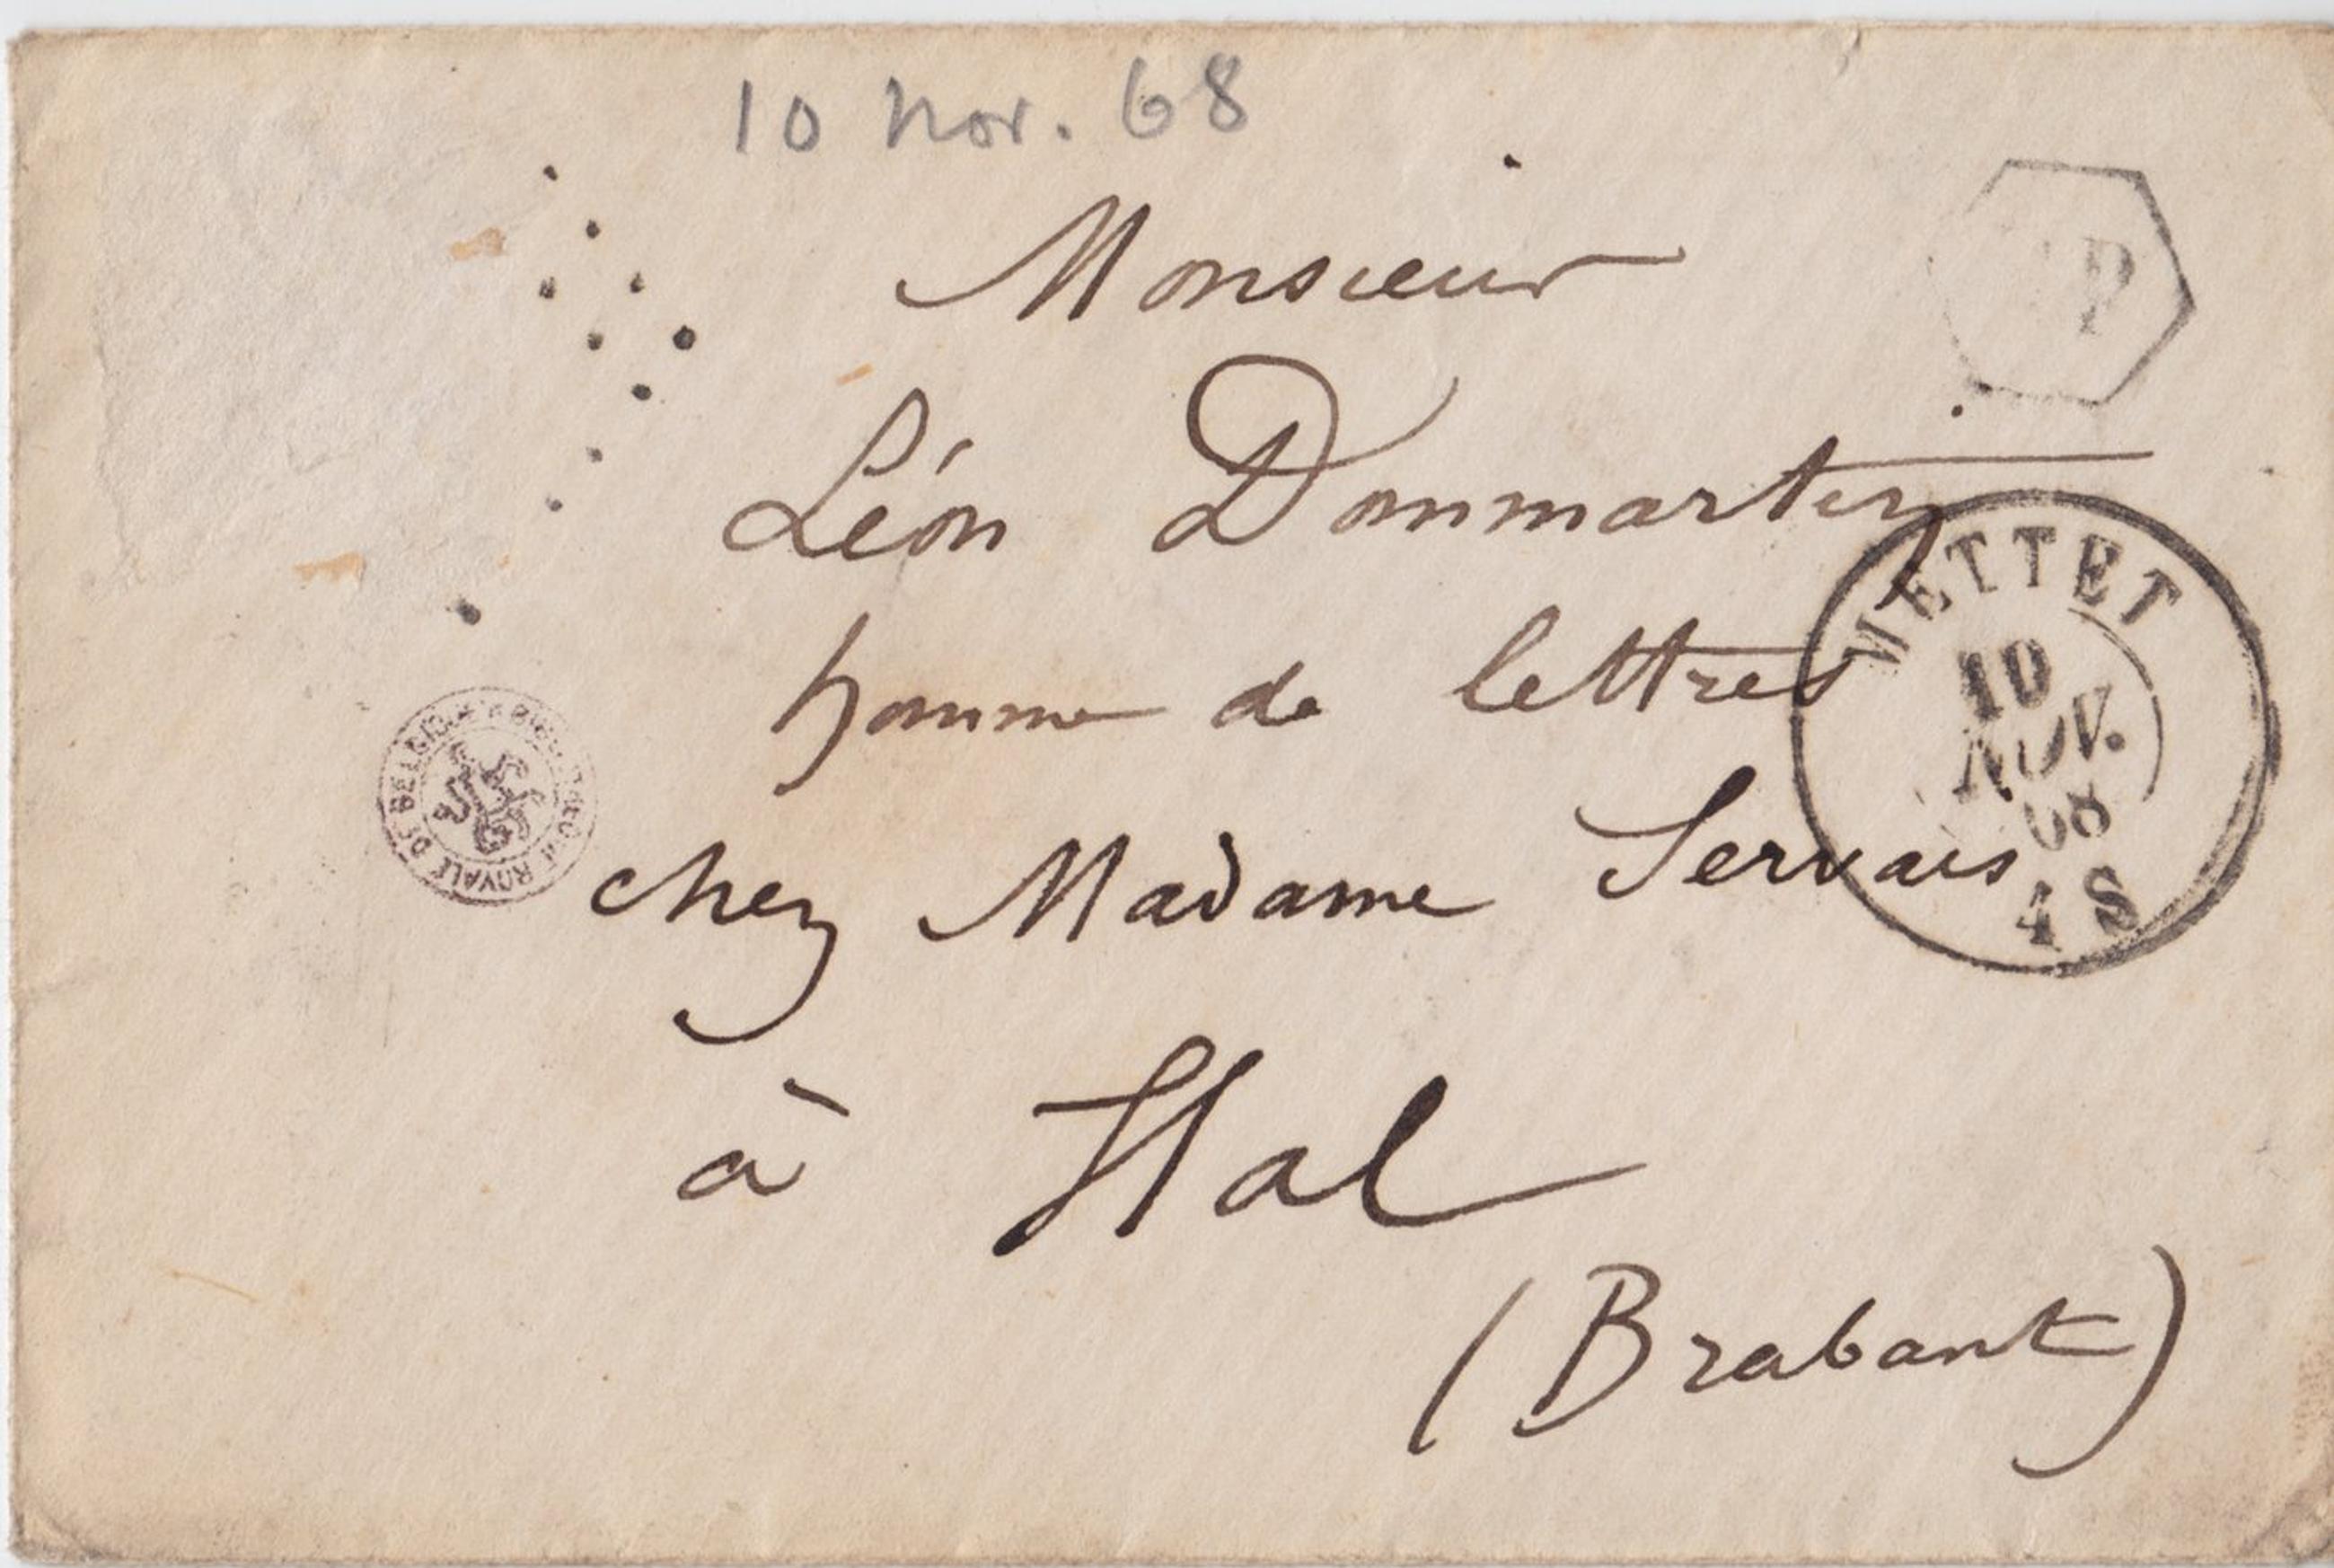 10 Nov. 68
Monsieur
Léon Dommartin
homme de lettres
chez Madame Servais
à Hal
(Brabant)
METTET
10
NOV.
68
4 S
ROYALE DE BELGIQUE